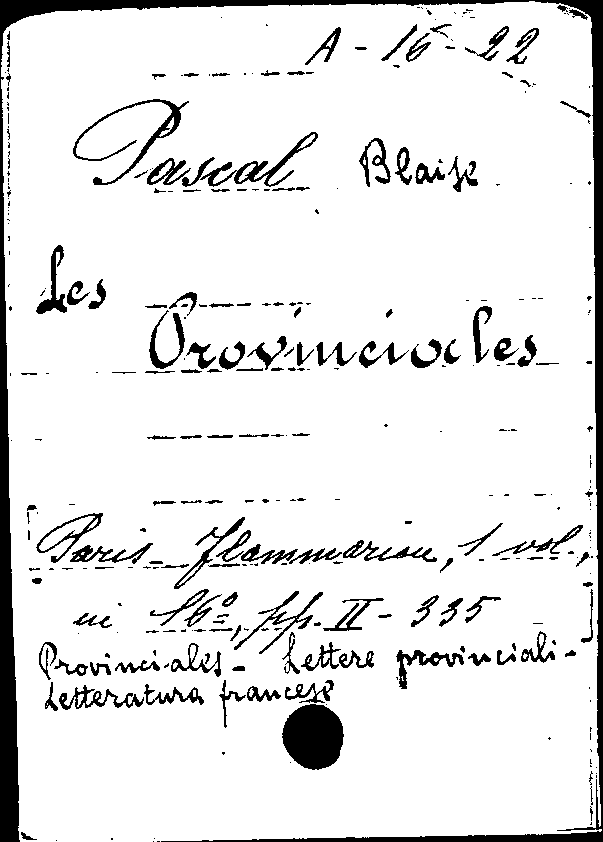 A - 16 - 22
Pascal Blaise
Les
Provinciales
Paris - Flammarion, 1 vol.,
in 16º, pp. II - 335
Provinciales - Lettere provinciali -
Letteratura francese